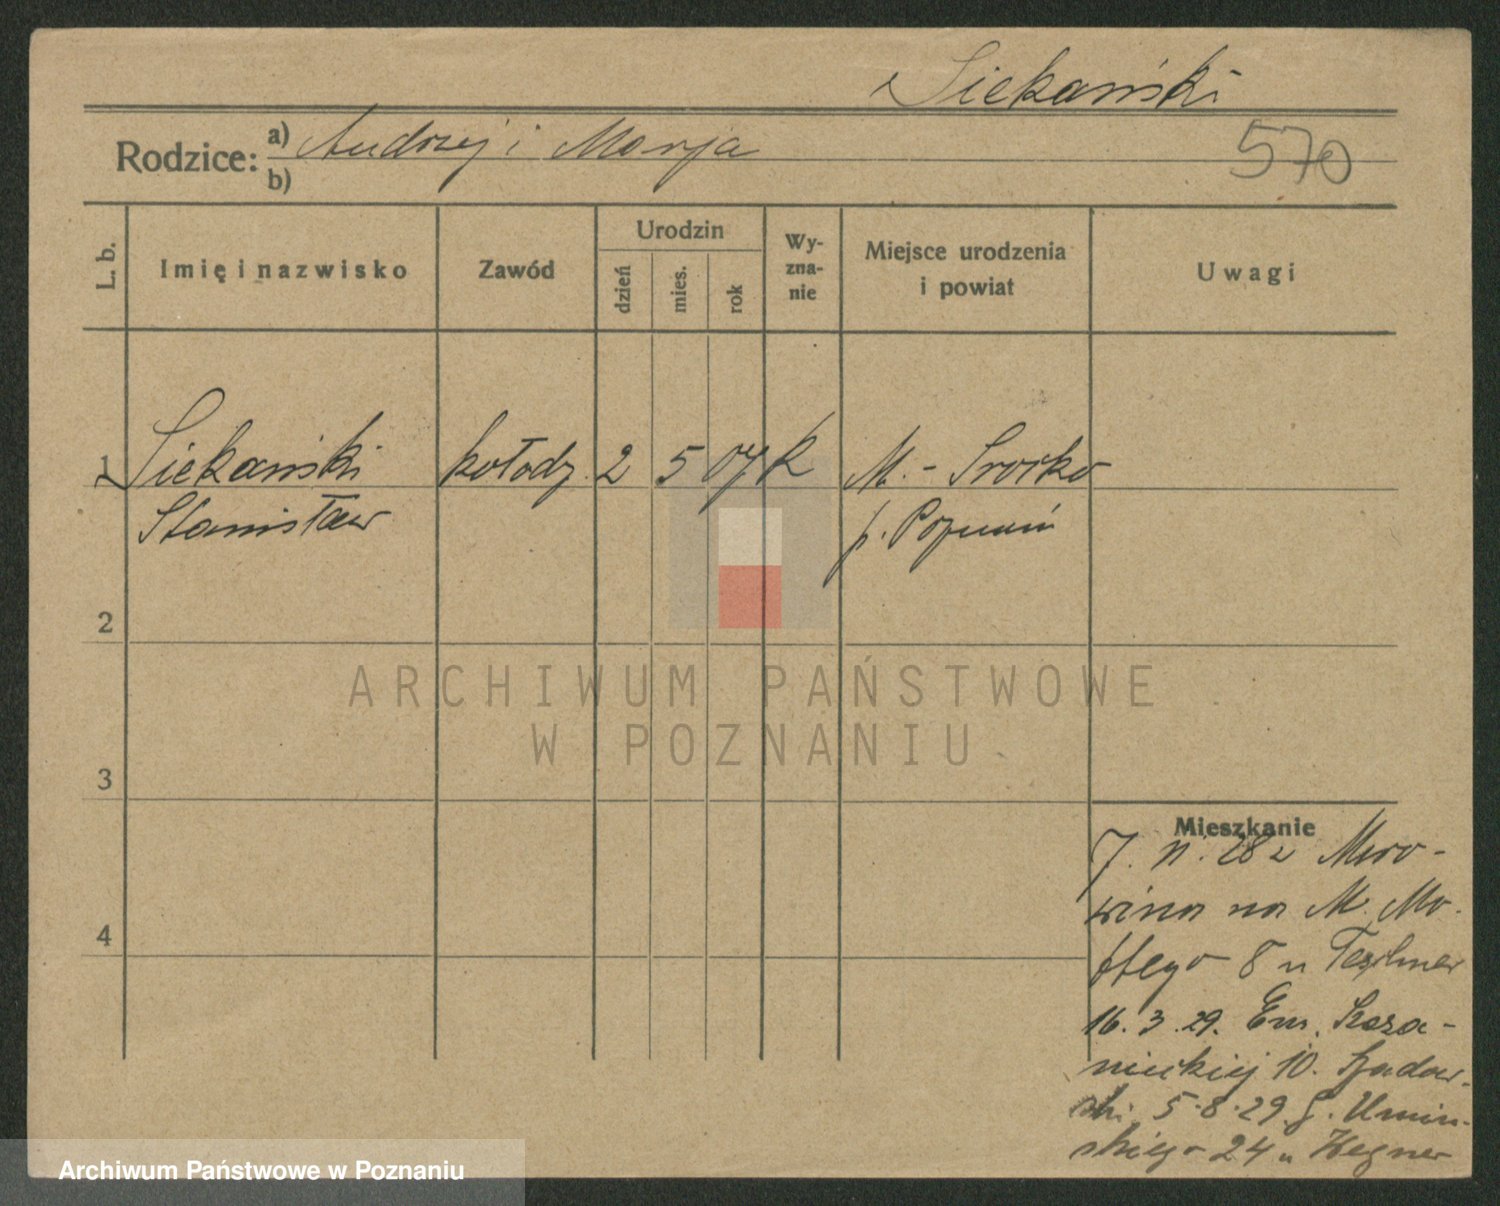 Siekański
Rodzice: a) Andrzej i Marja
b)
570
L. b.
Imię i nazwisko
Zawód
Urodzin
dzień
mies.
rok
Wy-
zna-
nie
Miejsce urodzenia
i powiat
Uwagi
1 Siekański kołodz. 2 5 07 k M. - Srocko
Stanisław p. Poznań
2
ARCHIWUM PAŃSTWOWE
W POZNANIU
3
Mieszkanie
7. 11. 282 Muro-
wina na M. Mo-
ttego 8 u Teschner
16. 3. 29. Em. Scza-
nieckiej 10.
ski 5.8.29 G. Umiń-
skiego 24 u Hegner
4
Archiwum Państwowe w Poznaniu